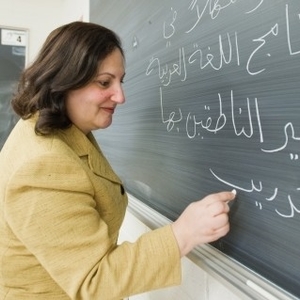 4
في
مج اللغة العربية
ير الناطقين بها
تدريب